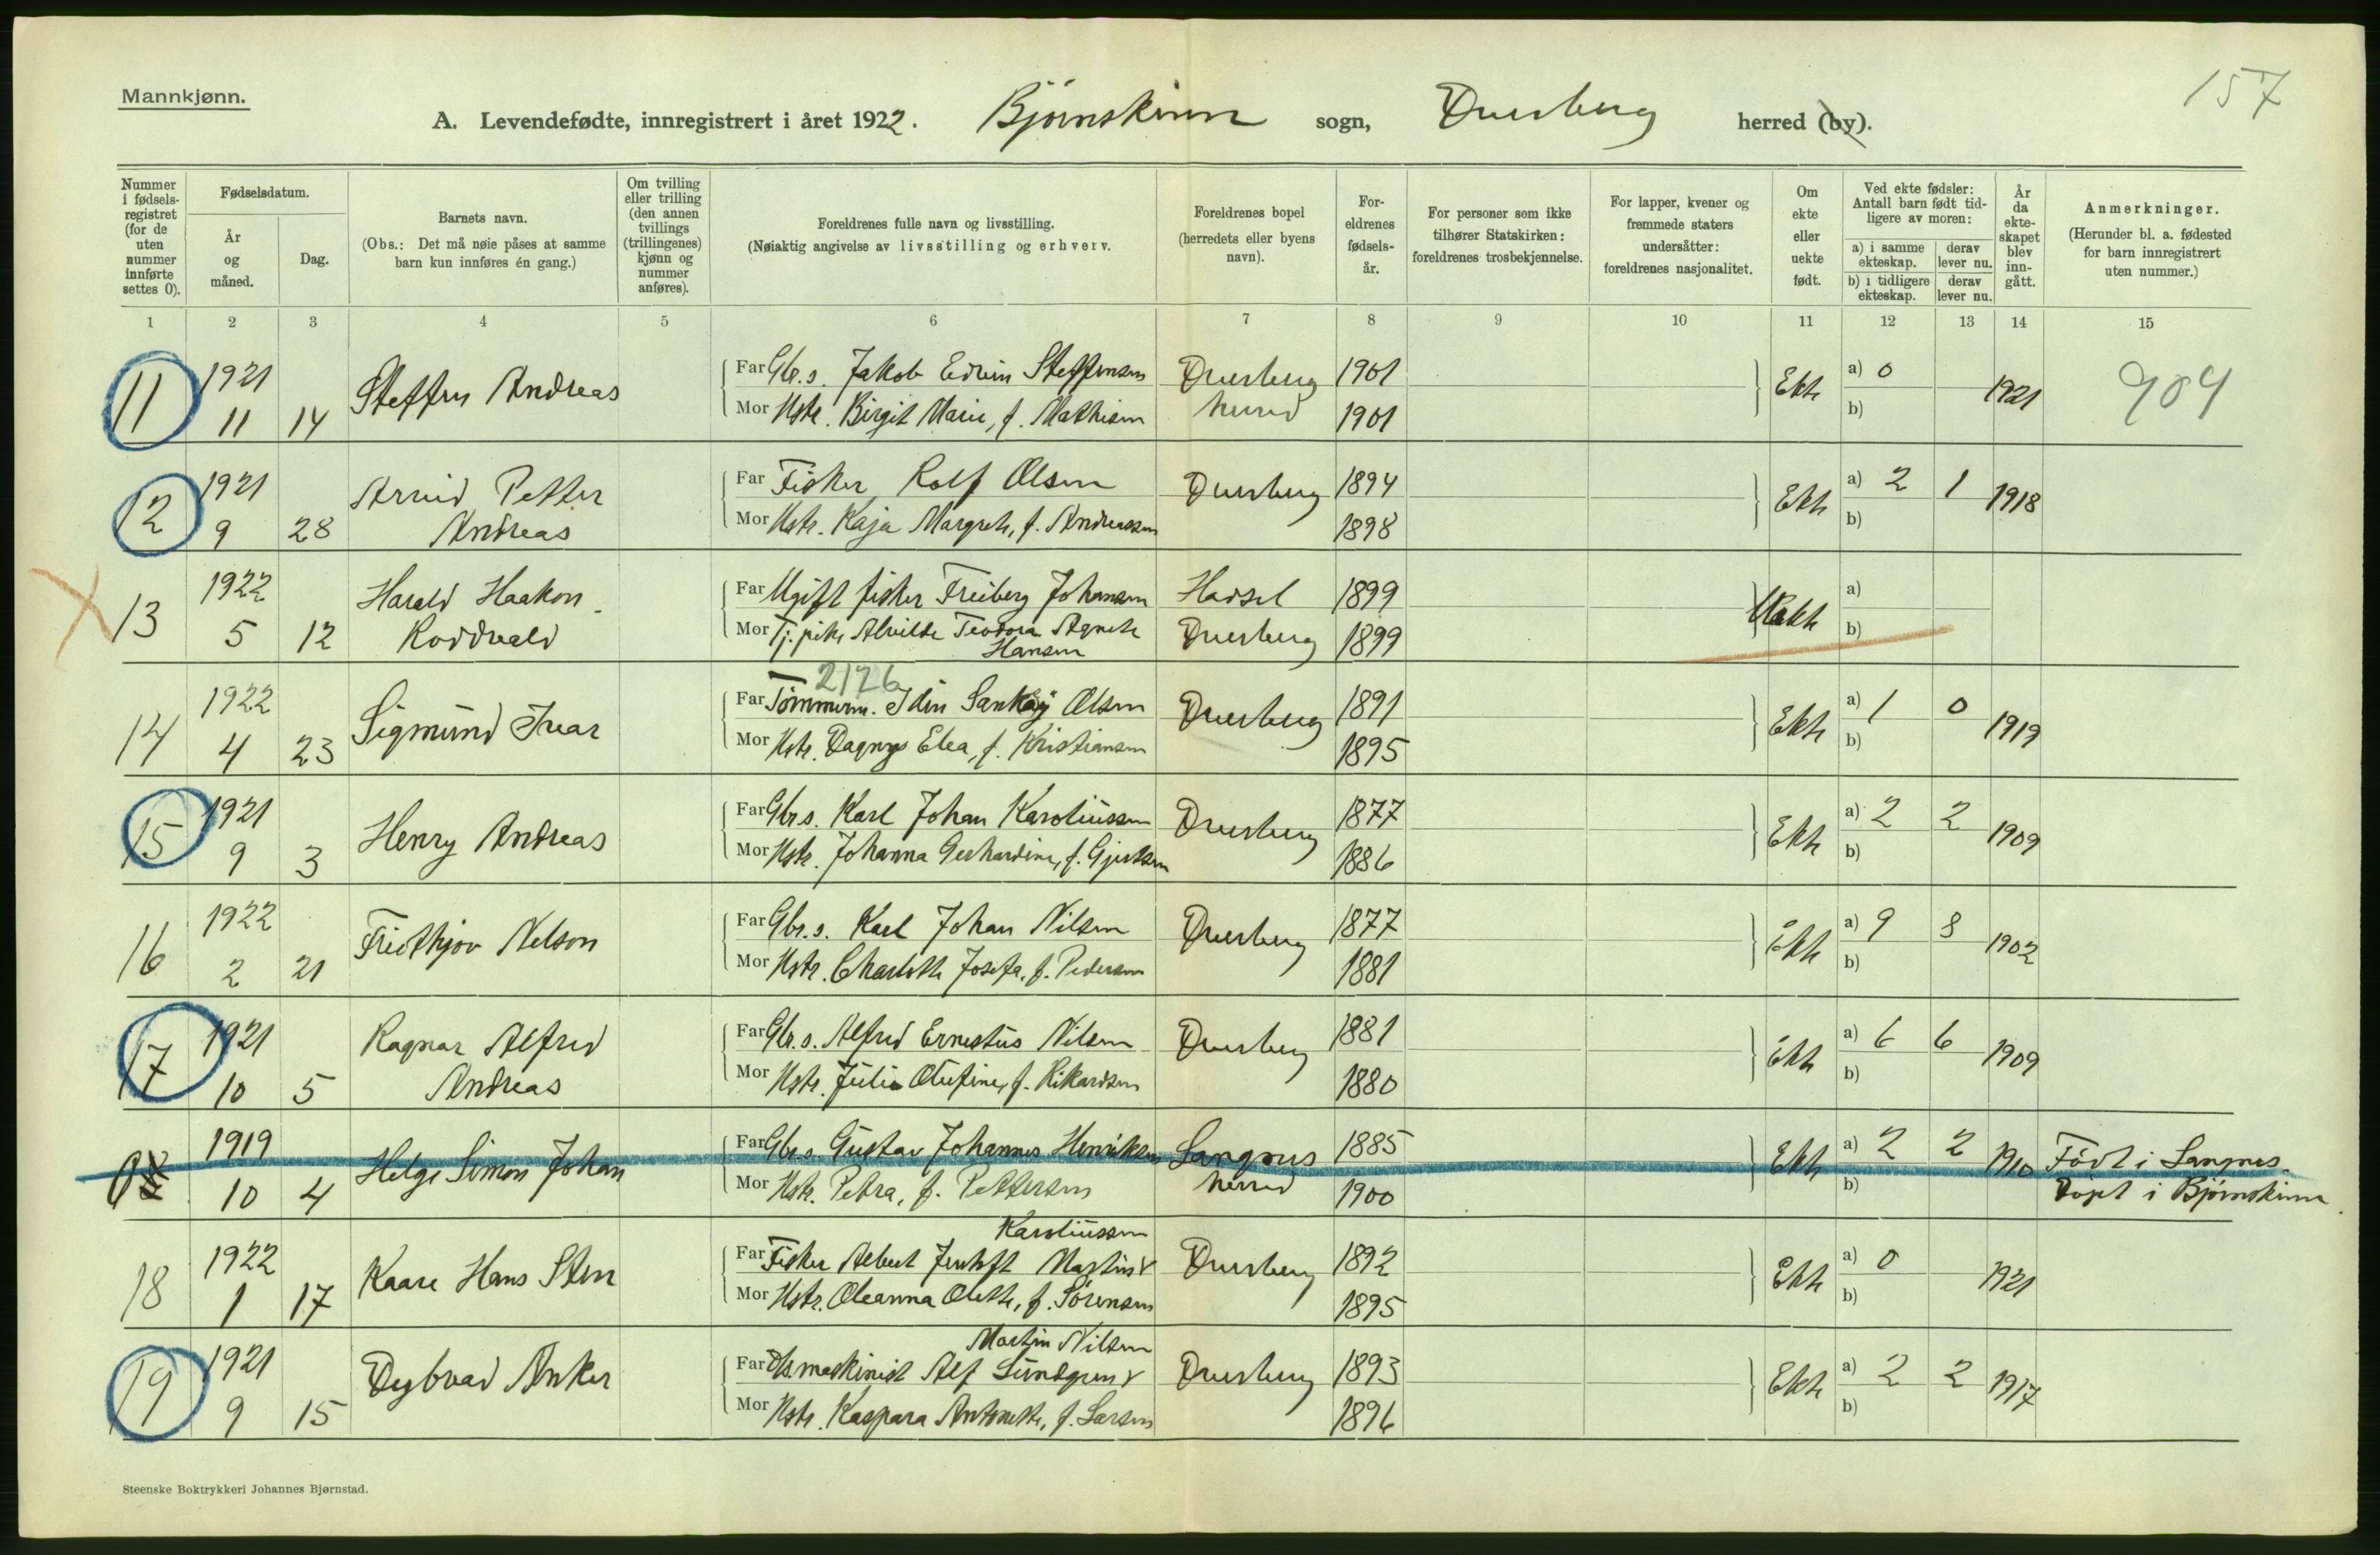 Mannkjønn.
157
A. Levendefødte, innregistrert i året 1922. Bjørnskinn sogn, Dverberg herred (by).
Nummer i fødsels-registret (for de uten nummer innførte settes 0).
Fødselsdatum.
År og måned.
Dag.
Barnets navn.
(Obs.: Det må nøie påses at samme barn kun innføres én gang.)
Om tvilling eller trilling (den annen tvillings (trillingenes) kjønn og nummer anføres).
Foreldrenes fulle navn og livsstilling.
(Nøiaktig angivelse av livsstilling og erhverv.
Foreldrenes bopel (herredets eller byens navn).
For-eldrenes fødsels-år.
For personer som ikke tilhører Statskirken: foreldrenes trosbekjennelse.
For lapper, kvener og fremmede staters undersåtter: foreldrenes nasjonalitet.
Om ekte eller uekte født.
Ved ekte fødsler: Antall barn født tid-ligere av moren:
a) i samme ekteskap. derav lever nu.
b) i tidligere ekteskap. derav lever nu.
År da ekte-skapet blev inn-gått.
Anmerkninger.
(Herunder bl. a. fødested for barn innregistrert uten nummer.)
1 2 3 4 5 6 7 8 9 10 11 12 13 14 15
11 1921 Steffen Andreas Far Gbr.s. Jakob Edvin Steffensen Dverberg 1901 Ekte a) 0 1921 904
11 14 Mor Hstr. Birgit Marie, f. Mathisen herred 1901 b)
12 1921 Arvid Petter Far Fisker Rolf Olsen Dverberg 1894 Ekte a) 2 1 1918
9 28 Andreas Mor Hstr. Kaja Margrete, f. Andreassen 1898 b)
13 1922 Harald Haakon Far Ugift fisker Freiberg Johansen Hadsel 1899 Uekte a)
5 12 Roddvald Mor Tj.pike Alvilde Teodora Agnete Dverberg 1899 b)
Hansen
2126
14 1922 Sigmund Ivar Far Tømmerm. Idin Sankøy Olsen Dverberg 1891 Ekte a) 1 0 1919
4 23 Mor Hstr. Dagny Elea, f. Kristiansen 1895 b)
15 1921 Henry Andreas Far Gbr.s. Karl Johan Karoliussen Dverberg 1877 Ekte a) 2 2 1909
9 3 Mor Hstr. Johanna Gerhardine, f. Gjertsen 1886 b)
16 1922 Fridthjov Nelson Far Gbr.s. Karl Johan Nilsen Dverberg 1877 Ekte a) 9 8 1902
2 21 Mor Hstr. Charlotte Josefa, f. Pedersen 1881 b)
17 1921 Ragnar Alfred Far Gbr.s. Alfred Ernestus Nilsen Dverberg 1881 Ekte a) 6 6 1909
10 5 Andreas Mor Hstr. Julie Olufine, f. Rikardsen 1880 b)
0 1919 Helge Simon Johan Far Gbr.s. Gustav Johannes Henriksen Langnes 1885 Ekte a) 2 2 1910 Født i Langnes.
10 4 Mor Hstr. Petra, f. Pettersen herred 1900 b) Døpt i Bjørnskinn
Karoliussen
18 1922 Kaare Hans Sten Far Fisker Albert Jentoft Martin Dverberg 1892 Ekte a) 0 1921
1 17 Mor Hstr. Oleanna Olette, f. Sørensen 1895 b)
Martin Nilsen
19 1921 Dybvad Anker Far Ds.maskinist Alf Lundgren Dverberg 1893 Ekte a) 2 2 1917
9 15 Mor Hstr. Kaspara Antonette, f. Larsen 1896 b)
Steenske Boktrykkeri Johannes Bjørnstad.